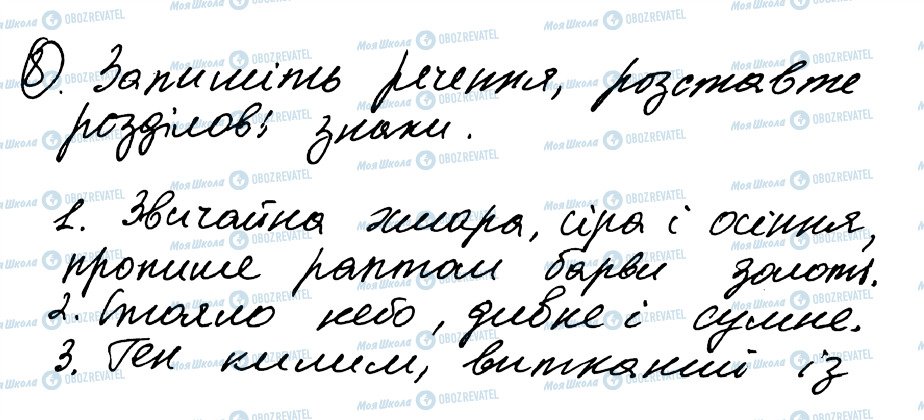 8. Запишіть речення, розставте
розділові знаки.
1. Звичайна хмара, сіра і осіння,
пропише раптом барви золоті.
2. Стояло небо, дивне і сумне.
3. Ген килим, витканий із